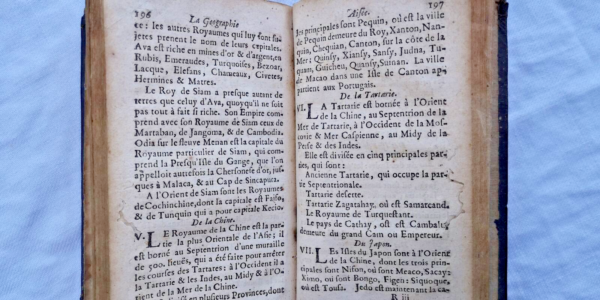 196
La Geographie
te: les autres Royaumes qui luy sont su-
jetes prenent le nom de leurs capitales.
Ava est riche en mines d'or & d'argent, en
Rubis, Emeraudes, Turquoises, Bezoar,
Lacque, Elefans, Chameaux, Civetes,
Hermines & Matres.
Le Roy de Siam a presque autant de
terres que celuy d'Ava, quoyqu'il ne soit
pas tout à fait si riche. Son Empire com-
prend avec son Royaume de Siam ceux de
Martaban, de Jangoma, & de Cambodia.
Odia sur le fleuve Menan est la capitale du
Royaume particulier de Siam, qui com-
prend la Presqu'Isle du Gange, que l'on
appelloit autrefois la Chersonese d'or, jus-
ques à Malaca, & au Cap de Sincapura.
A l'Orient de Siam sont les Royaumes
de Cochinchine, dont la capitale est Faifo,
& de Tunquin qui a pour capitale Kecio.
De la Chine.
V. LE Royaume de la Chine est la par-
tie la plus Orientale de l'Asie; il
est borné au Septentrion d'une muraille
de 500. lieuës, qui a été faite pour arrêter
les courses des Tartares; à l'Occident il a
la Tartarie & les Indes, au Midy & à l'O-
rient de la Mer de la Chine.
en plusieurs Provinces, dont
Asie.
197
les principales sont Pequin, où est la ville
de Pequin demeure du Roy, Xanton, Nan-
quin, Chequian, Canton, sur la côte de la
Mer; Quinsy, Xiansy, Sansy, Judna, Tu-
quian, Guicheu, Quansy, Suinan. La ville
de Macao dans une Isle de Canton ap-
partient aux Portugais.
De la Tartarie.
VI. LA Tartarie est bornée à l'Orient
de la Chine, au Septentrion de la
Mer de Tartarie, à l'Occident de la Mos-
covie & Mer Caspienne, au Midy de la
Perse & des Indes.
Elle est divisée en cinq principales par-
ties, qui sont:
Ancienne Tartarie, qui occupe la par-
tie Septentrionale.
Tartarie deserte.
Tartarie Zagatahay, où est Samarcand.
Le Royaume de Turquestant.
Le pays de Cathay, où est Cambalu
demeure du grand Cam ou Empereur.
Du Japon.
VII. LEs Isles du Japon sont à l'Orient
de la Chine, dont les trois prin-
cipales sont Nifon, où sont Meaco, Sacay:
Ximo, où sont Bongo, Figen: Siquoque,
où est Tousa. Jedo est maintenant la ca-
R iij